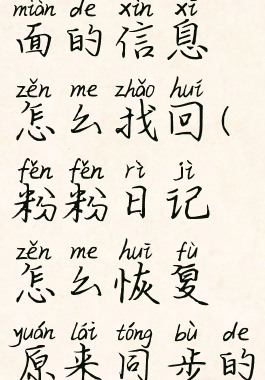 miàn de xìn xī
面的信息
zěn me zhǎo huí
怎么找回(
fěn fěn rì jì
粉粉日记
zěn me huī fù
怎么恢复
yuán lái tóng bù de
原来同步的